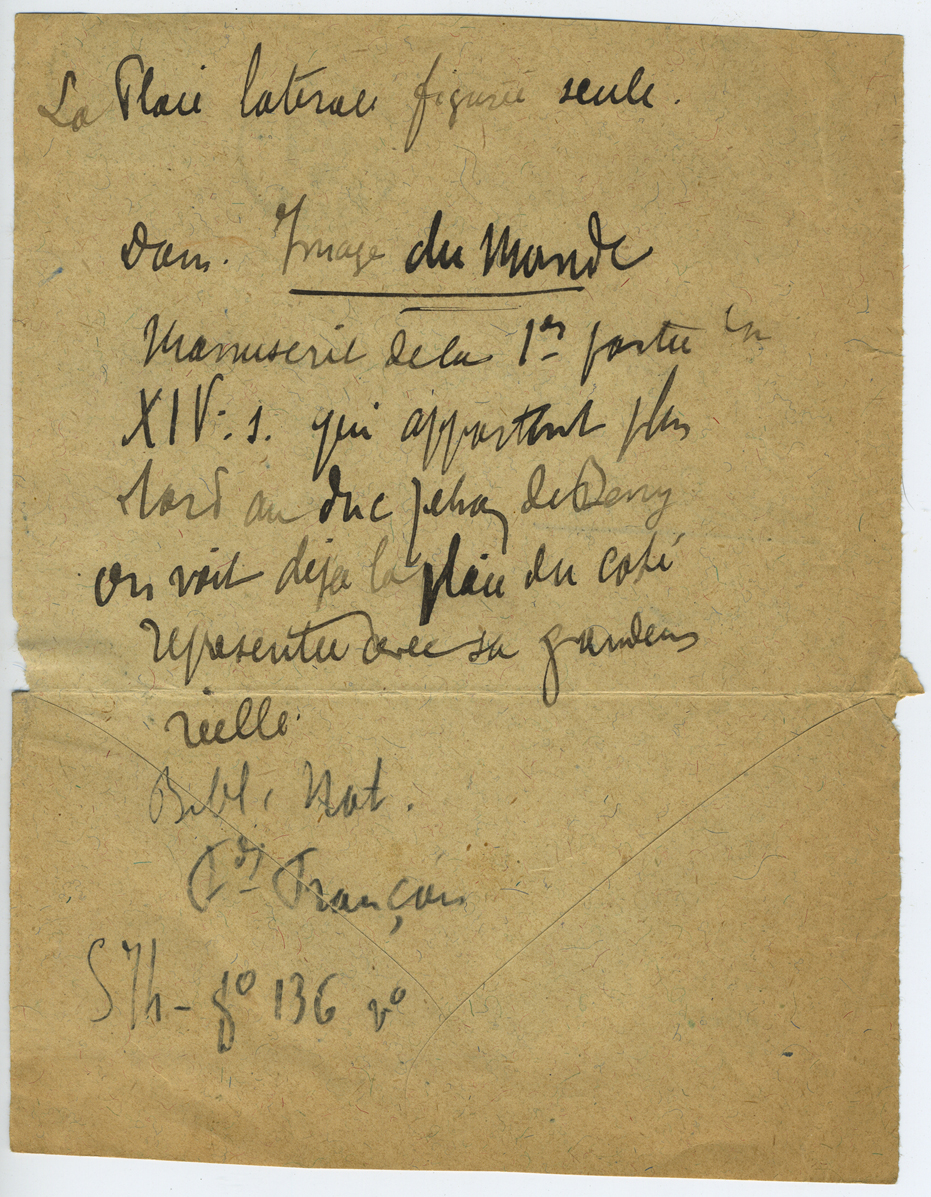 La Plaie laterale figurée seule.
Dans. Image du Monde
Manuscrit de la 1re partie du
XIVe. s. qui appartint plus
tard au duc Jehan de Berry
on voit deja la plaie du coté
representee avec sa grandeur
réelle.
Bibl. Nat.
Fds Français
574 - fo 136 vo